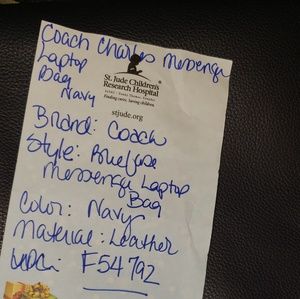 Coach Charles Messenger
Laptop
Bag
Navy
St. Jude Children's
Research Hospital
Finding cures. Saving children.
stjude.org
Brand: Coach
Style: Briefcase
Messenger Laptop
Bag
Color: Navy
Material: Leather
F54792